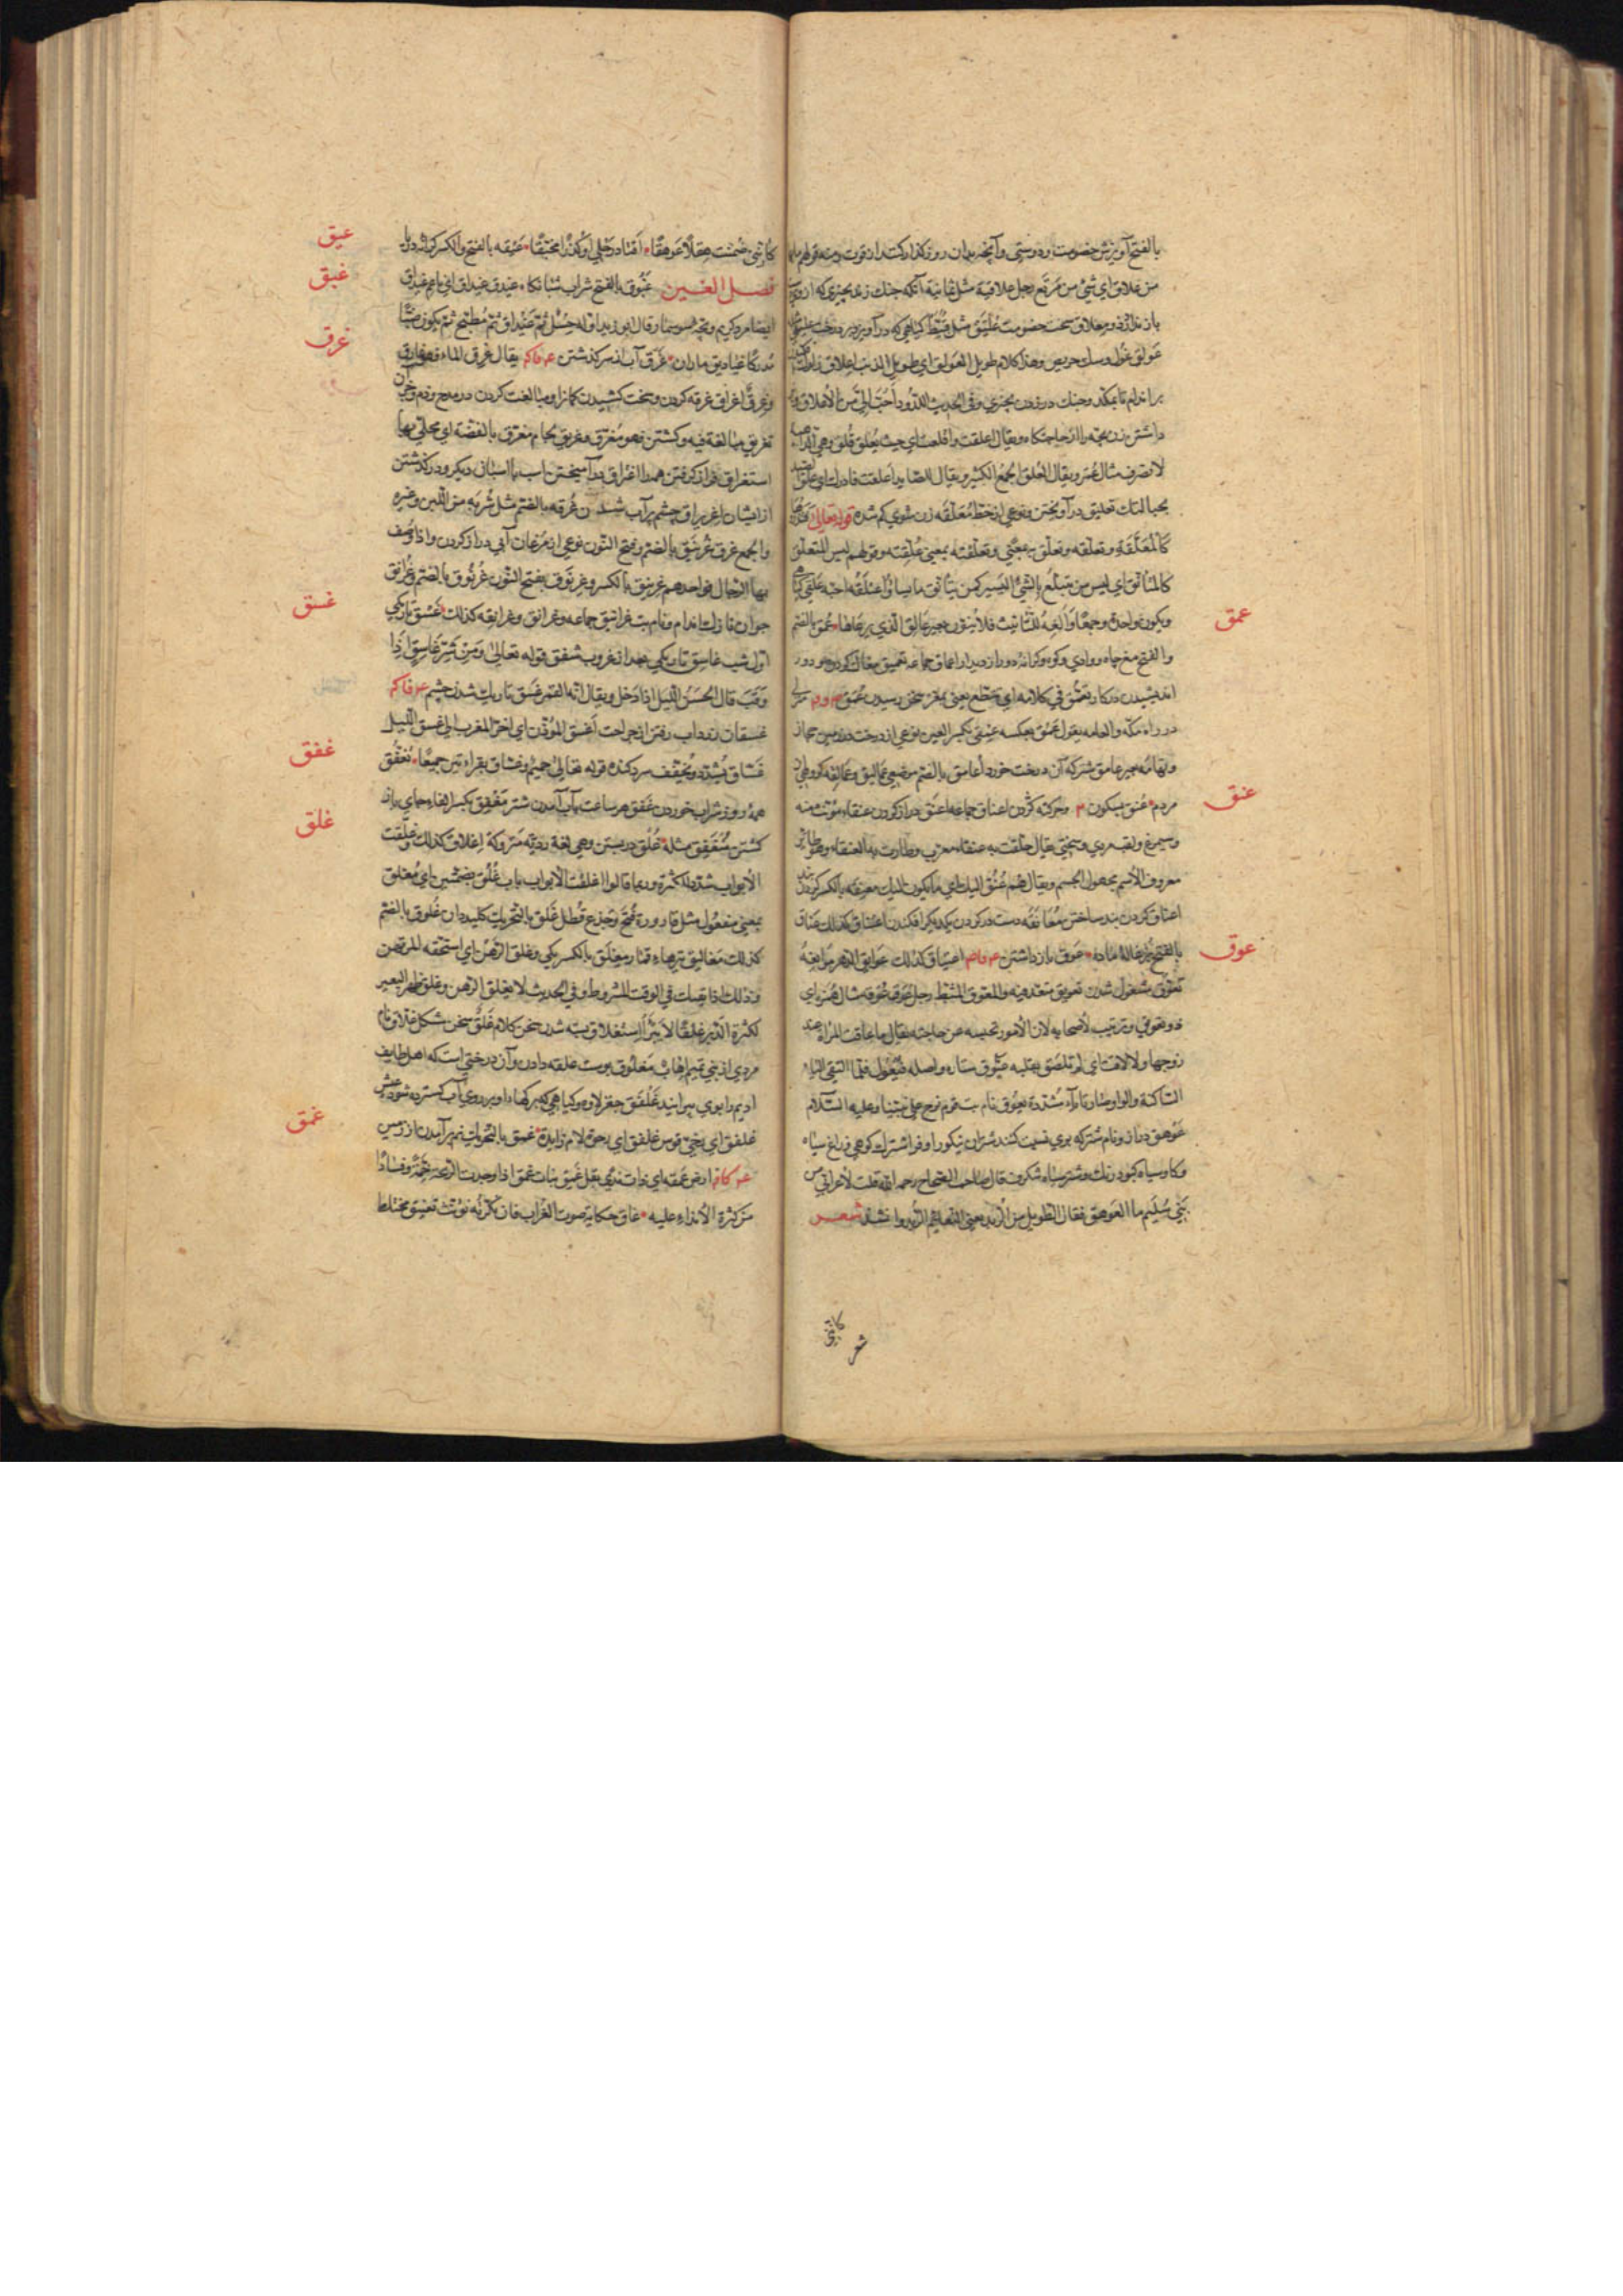 بالفتح آویزش خصومت و دوستی و آنچه بدان روز گذارکنند از قوت ومنه قولهم
من علاق ای شئ من مرتع رجل علاقیة مثل ثمانیة آنکه چنك زند بچیزی که
باز ندارد ومعلاق سخت خصومت علیق مثل قبیط گیاهی که درآویزد بر درخت
عولق غول وسك حریص وهذا کلام طویل العولق ای طویل الذنب اعلاق زلو
براندام تا بمکد وچنك در زدن بچیزی وفی الحدیث اللدود احب الی من الاعلاق
داشتن زن بچه را ویقال اعلقت وافلقت ای جئت بعلق فلق وهی
لا تصرف مثال عمر ویقال العلق الجمع الکثیر ویقال للصائد اعلقت فادرك ای علق
بحبالتك تعلیق درآویختن ونوعی از خط معلقه زن شوی گم شده قوله تعالی
کالمعلقة وتعلقه وتعلق به بمعنی وتعلقته بمعنی علقته وقولهم لیس المتعلق
کالمتانق ای لیس من یتبلغ بالشئ الیسیر کمن یتانق ما یشاء اعتلقه احبه علقی
ویکون واحدة وجمعا والفه للتانیث فلا ینون بعیر عالق الذی یرعاها عمق بالضم
عمق
والفتح مغ چاه ووادی وکوه وکرانه دور از بیدار اعماق جماعه تعمیق مغاك کردن ودور
اندیشیدن در کار وتعمق فی کلامه ای تنطع یعنی بمغز سخن رسیدن عمق
در راه مکه والعامه یقول عمق بعکسه عمقی بکسر العین نوعی از درخت در زمین حجاز
وتهامه بعیر عامق شتر که آن درخت خورد اعامق بالضم موضعی عمالیق وعمالقه گروهی
مردم عنق بسکون وحرکته گردن اعناق جماعه اعنق دراز گردن عنقاء مؤنث منه
عنق
وسیمرغ ولقب مردی وسختی یقال حلقت به عنقاء مغرب وطارت به العنقاء وهو طائر
معروف الاسم مجهول الجسم ویقال هم عنق الیك ای مائلون الیك معنقه بالکسر گردن بند
اعناق گردن بند ساختن معانقه دست در گردن یکدیگر افکندن اعتناق کذلك عناق
بالفتح بزغاله ماده عوق باز داشتن اعتیاق کذلك عوایق الدهر موانعه
عوق
تعوق مشغول شدن تعویق متعد منه والمعوق المثبط رجل عوق عوقه مثال همزه ای
ذو تعویق وترتیب لاصحابه لان الامور تحبسه عن حاجته یقال ما عاقت المراة عند
زوجها ولا لاقت ای لم تلصق بقلبه عیوق ستاره واصله فیعول فلما التقی الیاء
الساکنة والواو صارتا یاء مشددة یعوق نام بت قوم نوح علی نبینا وعلیه السلام
عوهق دراز ونام شتر که بوی نسبت کنند شتران نیکو را وفراشترك کوهی وزاغ سیاه
وگاو سیاه کبود رنك وشتر سیاه شگرف قال صاحب الصحاح رحمه الله قلت لاعرابی من
بنی سلیم ما العوهق فقال الطویل من الربد یعنی النعام الربد وانشد شعر
کانی
شعر
کاننی ضمنت هقلا عوهقا اقتاد رحلی او کدرا محنقا عیقه بالفتح والکسر کرانه دریا
عیق
فصل الغین غبوق بالفتح شراب شبانگاه غیدق غیداق ای ناعم غیداق
غبق
ایضا مرد کریم وبچه سوسمار قال ابو زید اوله حسل ثم غیداق ثم مطبخ ثم یکون ضبا
مدرکا غیادیق ماران غرق آب از سر گذشتن یقال غرق الماء فهو غارق
غرق
وغرق اغراق غرقه کردن وسخت کشیدن کمانرا ومبالغت کردن در مدح وذم وجز آن
تغریق مبالغة فیه وکشتن فهو مغرق وغریق لجام مغرق بالفضة ای محلی بها
استغراق فراز گرفتن همه را اغتراق درآمیختن اسب با اسبان دیگر ودر گذشتن
از ایشان اغریراق چشم پر آب شدن غرقه بالضم مثل شربه من اللبن وغیره
والجمع غرق غرنیق بالضم وفتح النون نوعی از مرغان آبی دراز گردن واذا وصف
بها الرجال فواحدهم غرنیق بالکسر وغرنوق بفتح النون غرنوق بالضم وغرانق
جوان نازك اندام ونام بت غرانیق جماعه وغرانق وغرانقه کذلك غسق تاریکی
غسق
اول شب غاسق تاریکی بعد از غروب شفق قوله تعالی ومن شر غاسق اذا
وقب قال الحسن اللیل اذا دخل ویقال انه القمر غسق تاریك شدن چشم
غسقان زرداب رفتن از جراحت اغسق المؤذن ای اخر المغرب الی غسق اللیل
غساق یشدد ویخفف سرد گنده قوله تعالی حمیم وغساق بقراءتین جمیعا تغفق
غفق
همه روز شراب خوردن غفق هر ساعت بآب آمدن شتر مغفق بکسر الفاء جای باز
گشتن منغفق مثله غلق در بستن وهی لغة ردیه متروکة اغلاق کذلك وغلقت
غلق
الابواب شدد للکثرة وربما قالوا اغلقت الابواب باب غلق بضمتین ای مغلق
بمعنی مفعول مثل قارورة فتح وجذع قطل غلق بالتحریك کلیددان غلوق بالضم
کذلك مغالیق تیرهاء قمار مغلق بالکسر یکی وغلق الرهن ای استحقه المرتهن
وذلك اذا لم یفك فی الوقت المشروط وفی الحدیث لا یغلق الرهن وغلق ظهر البعیر
لکثرة الدبر غلقا لا یبرأ استغلاق بسته شدن سخن کلام غلق سخن مشکل غلاق نام
مردی از بنی تمیم اهاب مغلوق پوست علقه دادن وآن درختی است که اهل طایف
ادیم را بوی پیرایند غلفق جغزلاوه وگیاهی که برگها دارد بر روی آب گسترده شود عیش
غلفق ای رخی قوس غلفق ای رخوة لام زایدة غمق بالتحریك نم برآمدن از زمین
غمق
ارض غمقه ای ذات ندی بقل غمق نبات غمق اذا وجدت لریحه خمة وفسادا
من کثرة الانداء علیه غاق حکایة صوت الغراب فان نکرته نونته تغیق مختلط